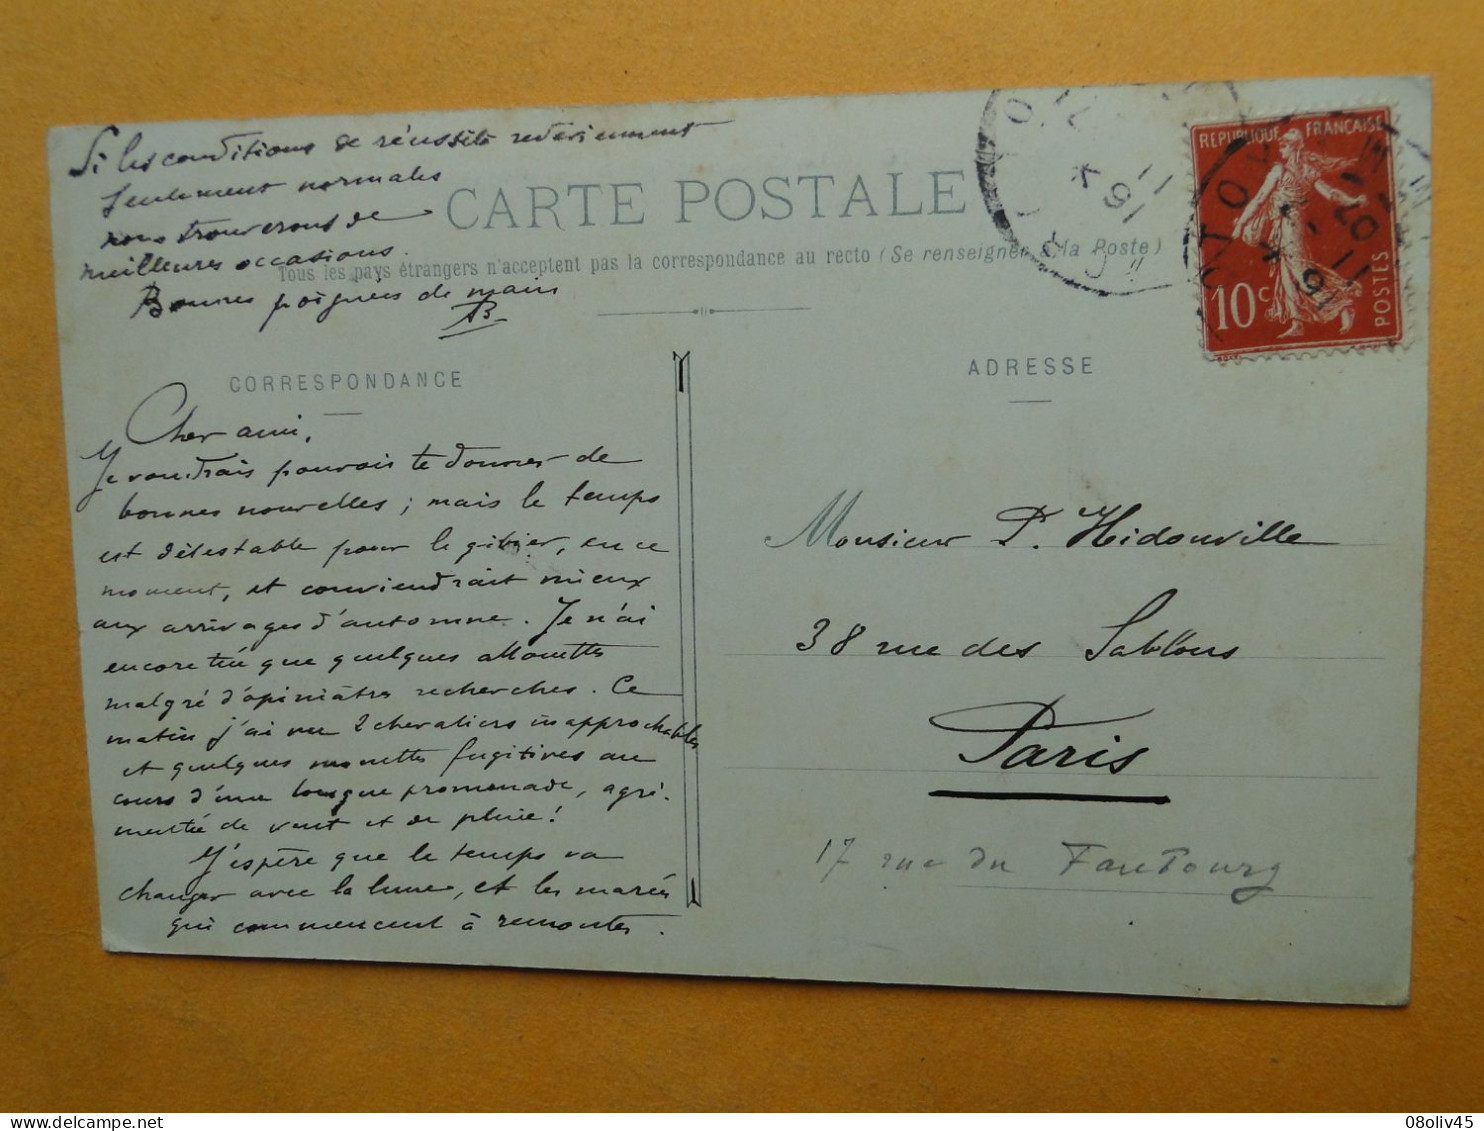 Si les conditions de réussite redeviennent
seulement normales
nous trouverons de
meilleures occasions.
Bonnes poignées de main
AB
CARTE POSTALE
Tous les pays étrangers n'acceptent pas la correspondance au recto (Se renseigner à la Poste)
REPUBLIQUE FRANÇAISE
10c
POSTES
CORRESPONDANCE
Cher ami,
Je voudrais pouvoir te donner de
bonnes nouvelles; mais le temps
est détestable pour le gibier, en ce
moment, et conviendrait mieux
aux arrivages d'automne. Je n'ai
encore tué que quelques allouettes
malgré d'opiniâtres recherches. Ce
matin j'ai vu 2 chevaliers inapprochables
et quelques mouettes fugitives au
cours d'une longue promenade, agré-
mentée de vent et de pluie!
J'espère que le temps va
changer avec la lune, et les marées
qui commencent à remonter.
ADRESSE
Monsieur P. Hidouville
38 rue des Sablons
Paris
17 rue du Faubourg
08oliv45
delcampe.net